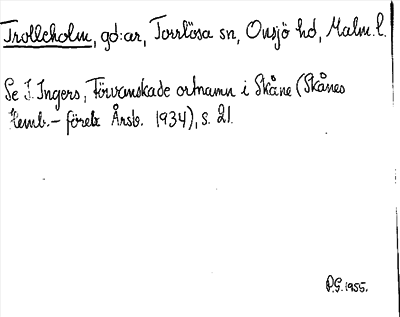 Trolleholm, gd:ar, Torrlösa sn, Onsjö hd, Malm. l.
Se I. Ingers, Förvanskade ortnamn i Skåne (Skånes
Hemb.- förb:s Årsb. 1934), s. 21.
P.G. 1955.